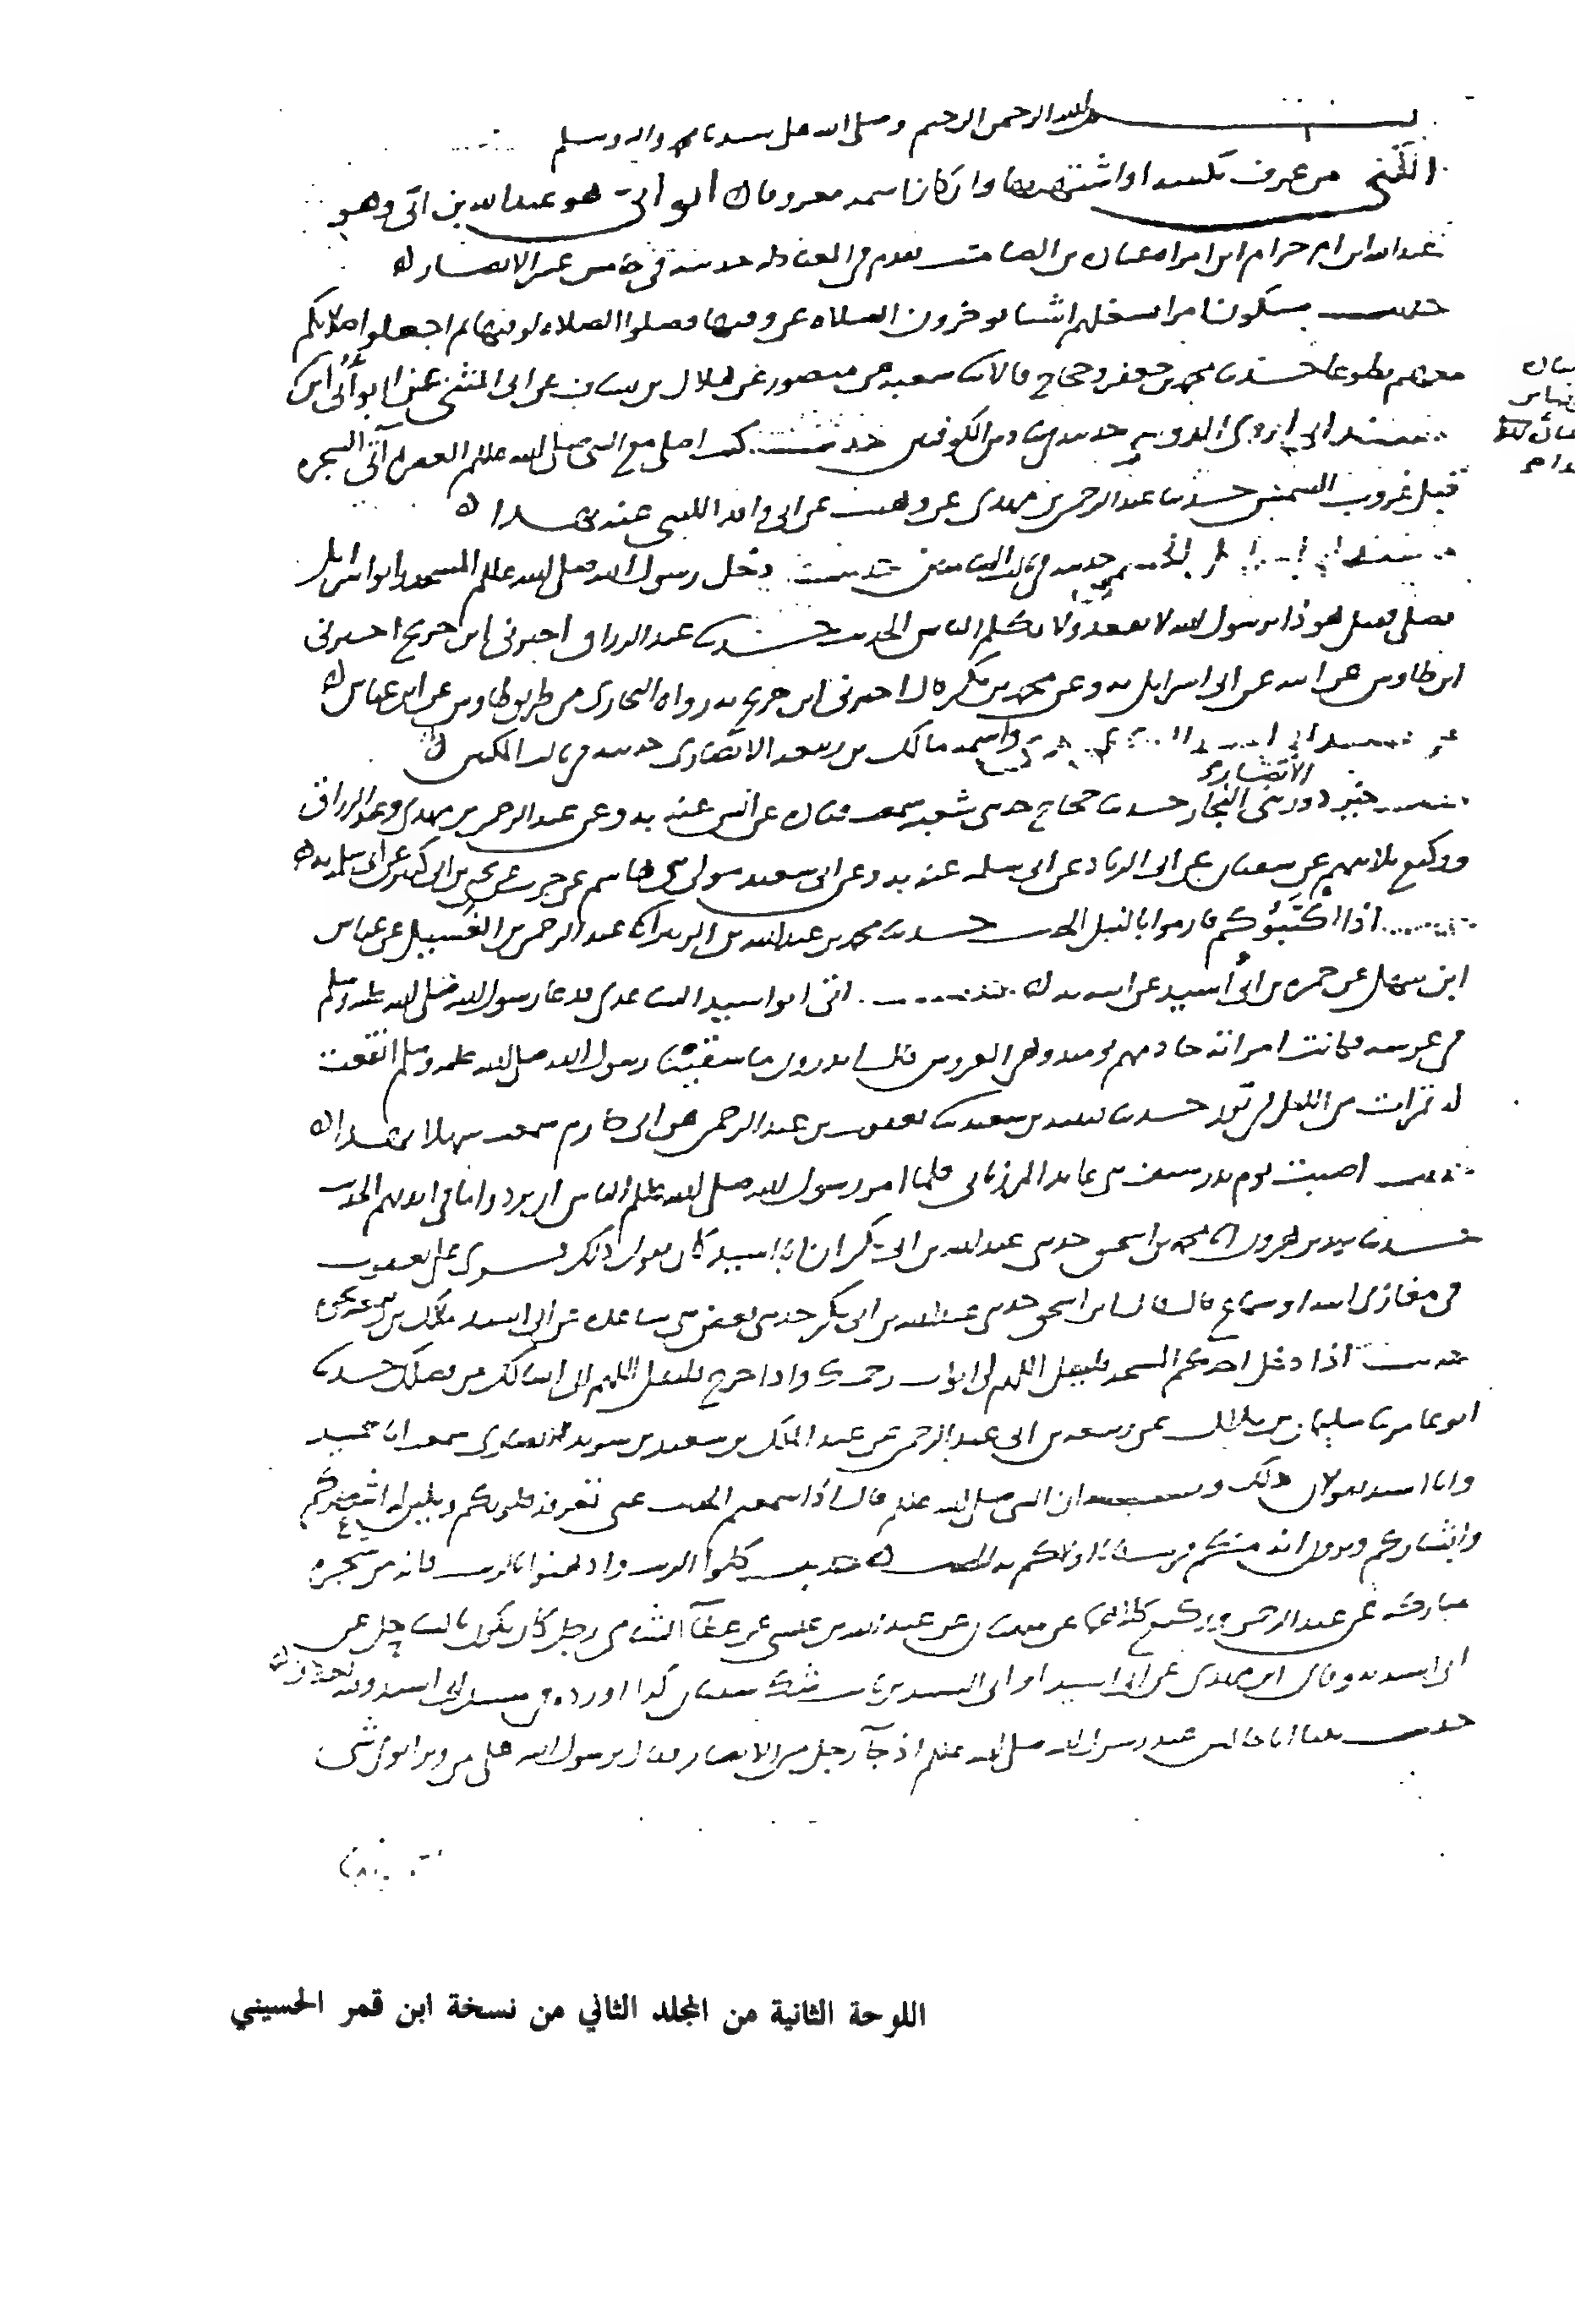 بسم الله الرحمن الرحيم وصلى الله على سيدنا محمد واله وسلم
الكنى من عرف بكنيته او اشتهر بها وان كان اسمه معروفا ابو ابي هو عبد الله بن ابي وهو
عبد الله ابن ام حرام ابن امراه عباده بن الصامت تقدم في العبادله حديثه في خامس عشر الانصار
حديث ستكون امرا تشغلهم اشيا يوخرون الصلاه عن وقتها فصلوا الصلاه لوقتها ثم اجعلوا صلاتكم
معهم تطوعا حدثنا محمد بن جعفر وحجاج قالا ثنا شعبه عن منصور عن هلال بن يساف عن ابي المثنى عن ابو أبي ابن
مسند ابي اروى الدوسي حديثه في الكوفيين حديث كنت اصلي مع النبي صلى الله عليه وسلم العصر ثم آتي الشجره
قبل غروب الشمس حدثنا عبد الرحمن بن مهدي عن وهيب عن ابي واقد الليثي عنه بهذا
حديثه في حديث دخل رسول الله صلى الله عليه وسلم المسجد وابو اسرايل
يصلي فقيل هو ذا يرسول الله لا يقعد ولا يكلم الناس الحديث حدثنا عبد الرزاق اخبرني ابن جريج اخبرني
ابن طاوس عن ابيه عن ابي اسرايل به وعن محمد بن بكر قال اخبرني ابن جريج به رواه البخاري من طريق طاوس عن ابن عباس
مسند ابي اسيد واسمه مالك بن ربيعه الانصاري حديثه في ثالث المكيين
الأنصار
حديث خير دور بني النجار حدثنا حجاج حدثني شعبه سمعت قتاده عن انس عنه به وعن عبد الرحمن بن مهدي وعبد الرزاق
ووكيع ثلاثتهم عن سفيان عن ابي الزناد عن ابي سلمه عنه به وعن ابي سعيد مولى بني هاشم عن حرب عن يحيى بن ابي كثير عن ابي سلمه به
اذا اكثبوكم فارموا بالنبل الحديث حدثنا محمد بن عبد الله بن الزبير انا عبد الرحمن بن الغسيل عن عباس
ابن سهل عن حمزه بن ابي أسيد عن ابيه به اتى ابو اسيد الساعدي فدعا رسول الله صلى الله عليه وسلم
في عرسه فكانت امراته خادمهم يوميذ وهي العروس قال اتدرون ما سقيت رسول الله صلى الله عليه وسلم انقعت
له تمرات من الليل في تور حدثنا قتيبه بن سعيد ثنا يعقوب بن عبد الرحمن عن ابي حازم سمعت سهلا بهذا
حديث اصبت يوم بدر سيف بن عابد المرزباني فلما امر رسول الله صلى الله عليه وسلم الناس ان يردوا ما في ايديهم الحديث
حدثنا يزيد بن هرون انا محمد بن اسحق حدثني عبد الله بن ابي بكر ان ابا اسيد كان يقول ذلك قرى على يعقوب
في مغازي ابيه او سماع قال قال ابن اسحق حدثني عبد الله بن ابي بكر حدثني بعض بني ساعده عن ابي اسيد مالك بن ربيعه
حديث اذا دخل احدكم المسجد فليقل اللهم افتح لي ابواب رحمتك واذا خرج فليقل اللهم اني اسالك من فضلك حدثنا
ابو عامر ثنا سليمان بن بلال عن ربيعه بن ابي عبد الرحمن عن عبد الملك بن سعيد بن سويد الانصاري سمعت ابا حميد
وابا اسيد يقولان ذلك وبه ان النبي صلى الله عليه وسلم قال اذا سمعتم الحديث عني تعرفه قلوبكم وتلين له اشعاركم
وابشاركم وترون انه منكم قريب فانا اولاكم به الحديث حديث كلوا الزيت وادهنوا بالزيت فانه من شجره
مباركه عن عبد الرحمن ووكيع كلاهما عن سفيان عن عبد الله بن عيسى عن عطآ الشامي رجل كان يكون بالساحل عن
ابي اسيد به وقال ابن مهدي عن ابي اسيد او ابي اسيد بن ثابت شك سفيان كذا اورده في مسند ابي اسيد
حديث بينما انا جالس عند رسول الله صلى الله عليه وسلم اذ جآ رجل من الانصار فقال يرسول الله هل بقي من بر ابوي شي
اللوحة الثانية من المجلد الثاني من نسخة ابن قمر الحسيني